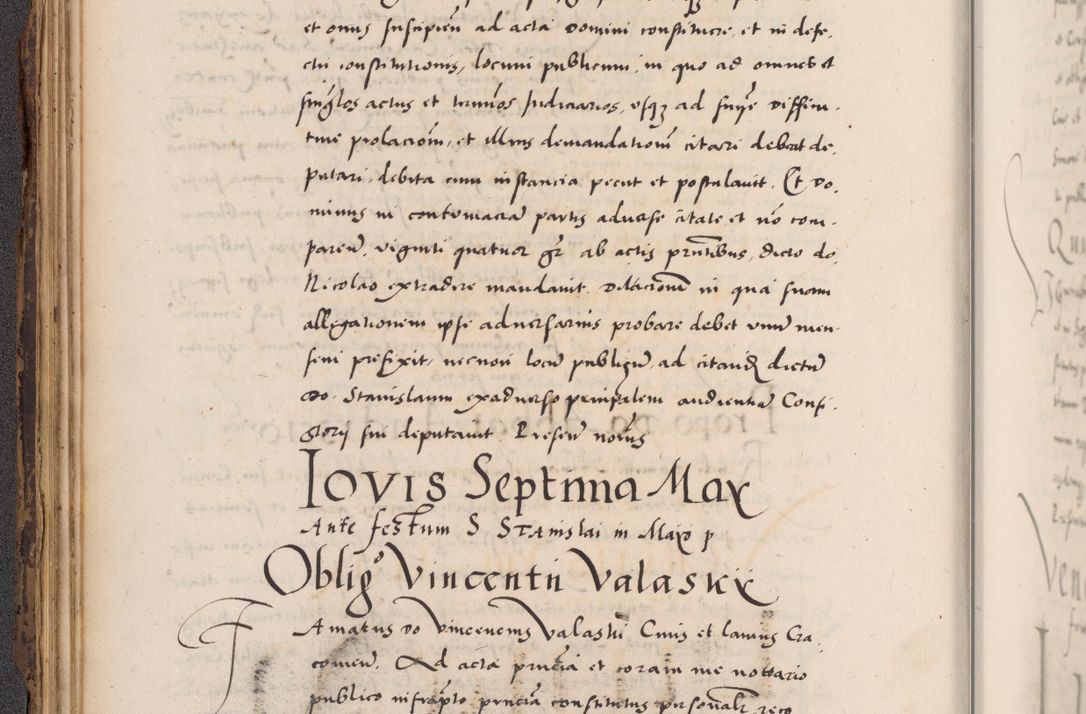 et onus suscipien ad acta Domini constituere, et in defe-
ctu constitutionis, locum publicum, in quo ad omnes et
singlos actus et terminos Judiciarios, usqz ad snie diffini-
tiue prolacionem, et illius demandationem citari debeat de-
putari, debita cum instancia petiit et postulauit. Et Do-
minus in contumacia partis aduerse citate et non com-
paren, viginti quatuor gr ab actis prntibus, dicto do.
Nicolao extradere mandauit. Dilacionem in qua suam
allegationem ipse aduersarius probare debet vnius men-
sem prefixit, necnon locum publicum, ad citand dictum
Do. Stanislaum exaduerso principalem audientie Consi-
storij sui deputauit. Presen notarius
Iovis Septima Maii
Ante festum S Stanislai in Maio
Obligo Vincentii Valaskii
Famatus Do Vincencius Valaski Ciuis et lanius Cra-
couien. Ad acta prncia et coram me nottario
publico infrapto prncia constitutus personalr reco